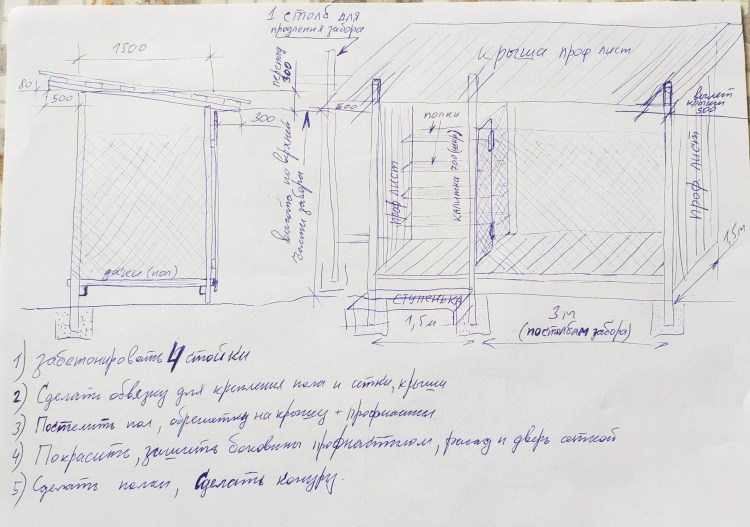 1 столб для
продления забора
1500
80
500
300
перепад
300
высота по верхней
части забора
доски (пол)
крыша проф лист
500
полки
проф лист
калитка 700 (шир)
вылет
крыши
500
проф лист
1,5м
ступенька
1,5м
3м
(по столбам забора)
1) Забетонировать 4 стойки
2) Сделать обвязку для крепления пола и сетки, крыши
3) Постелить пол, обрешетку на крышу + профнастил
4) Покрасить, зашить боковины профнастилом, фасад и дверь сеткой
5) Сделать полки, Сделать конуру.